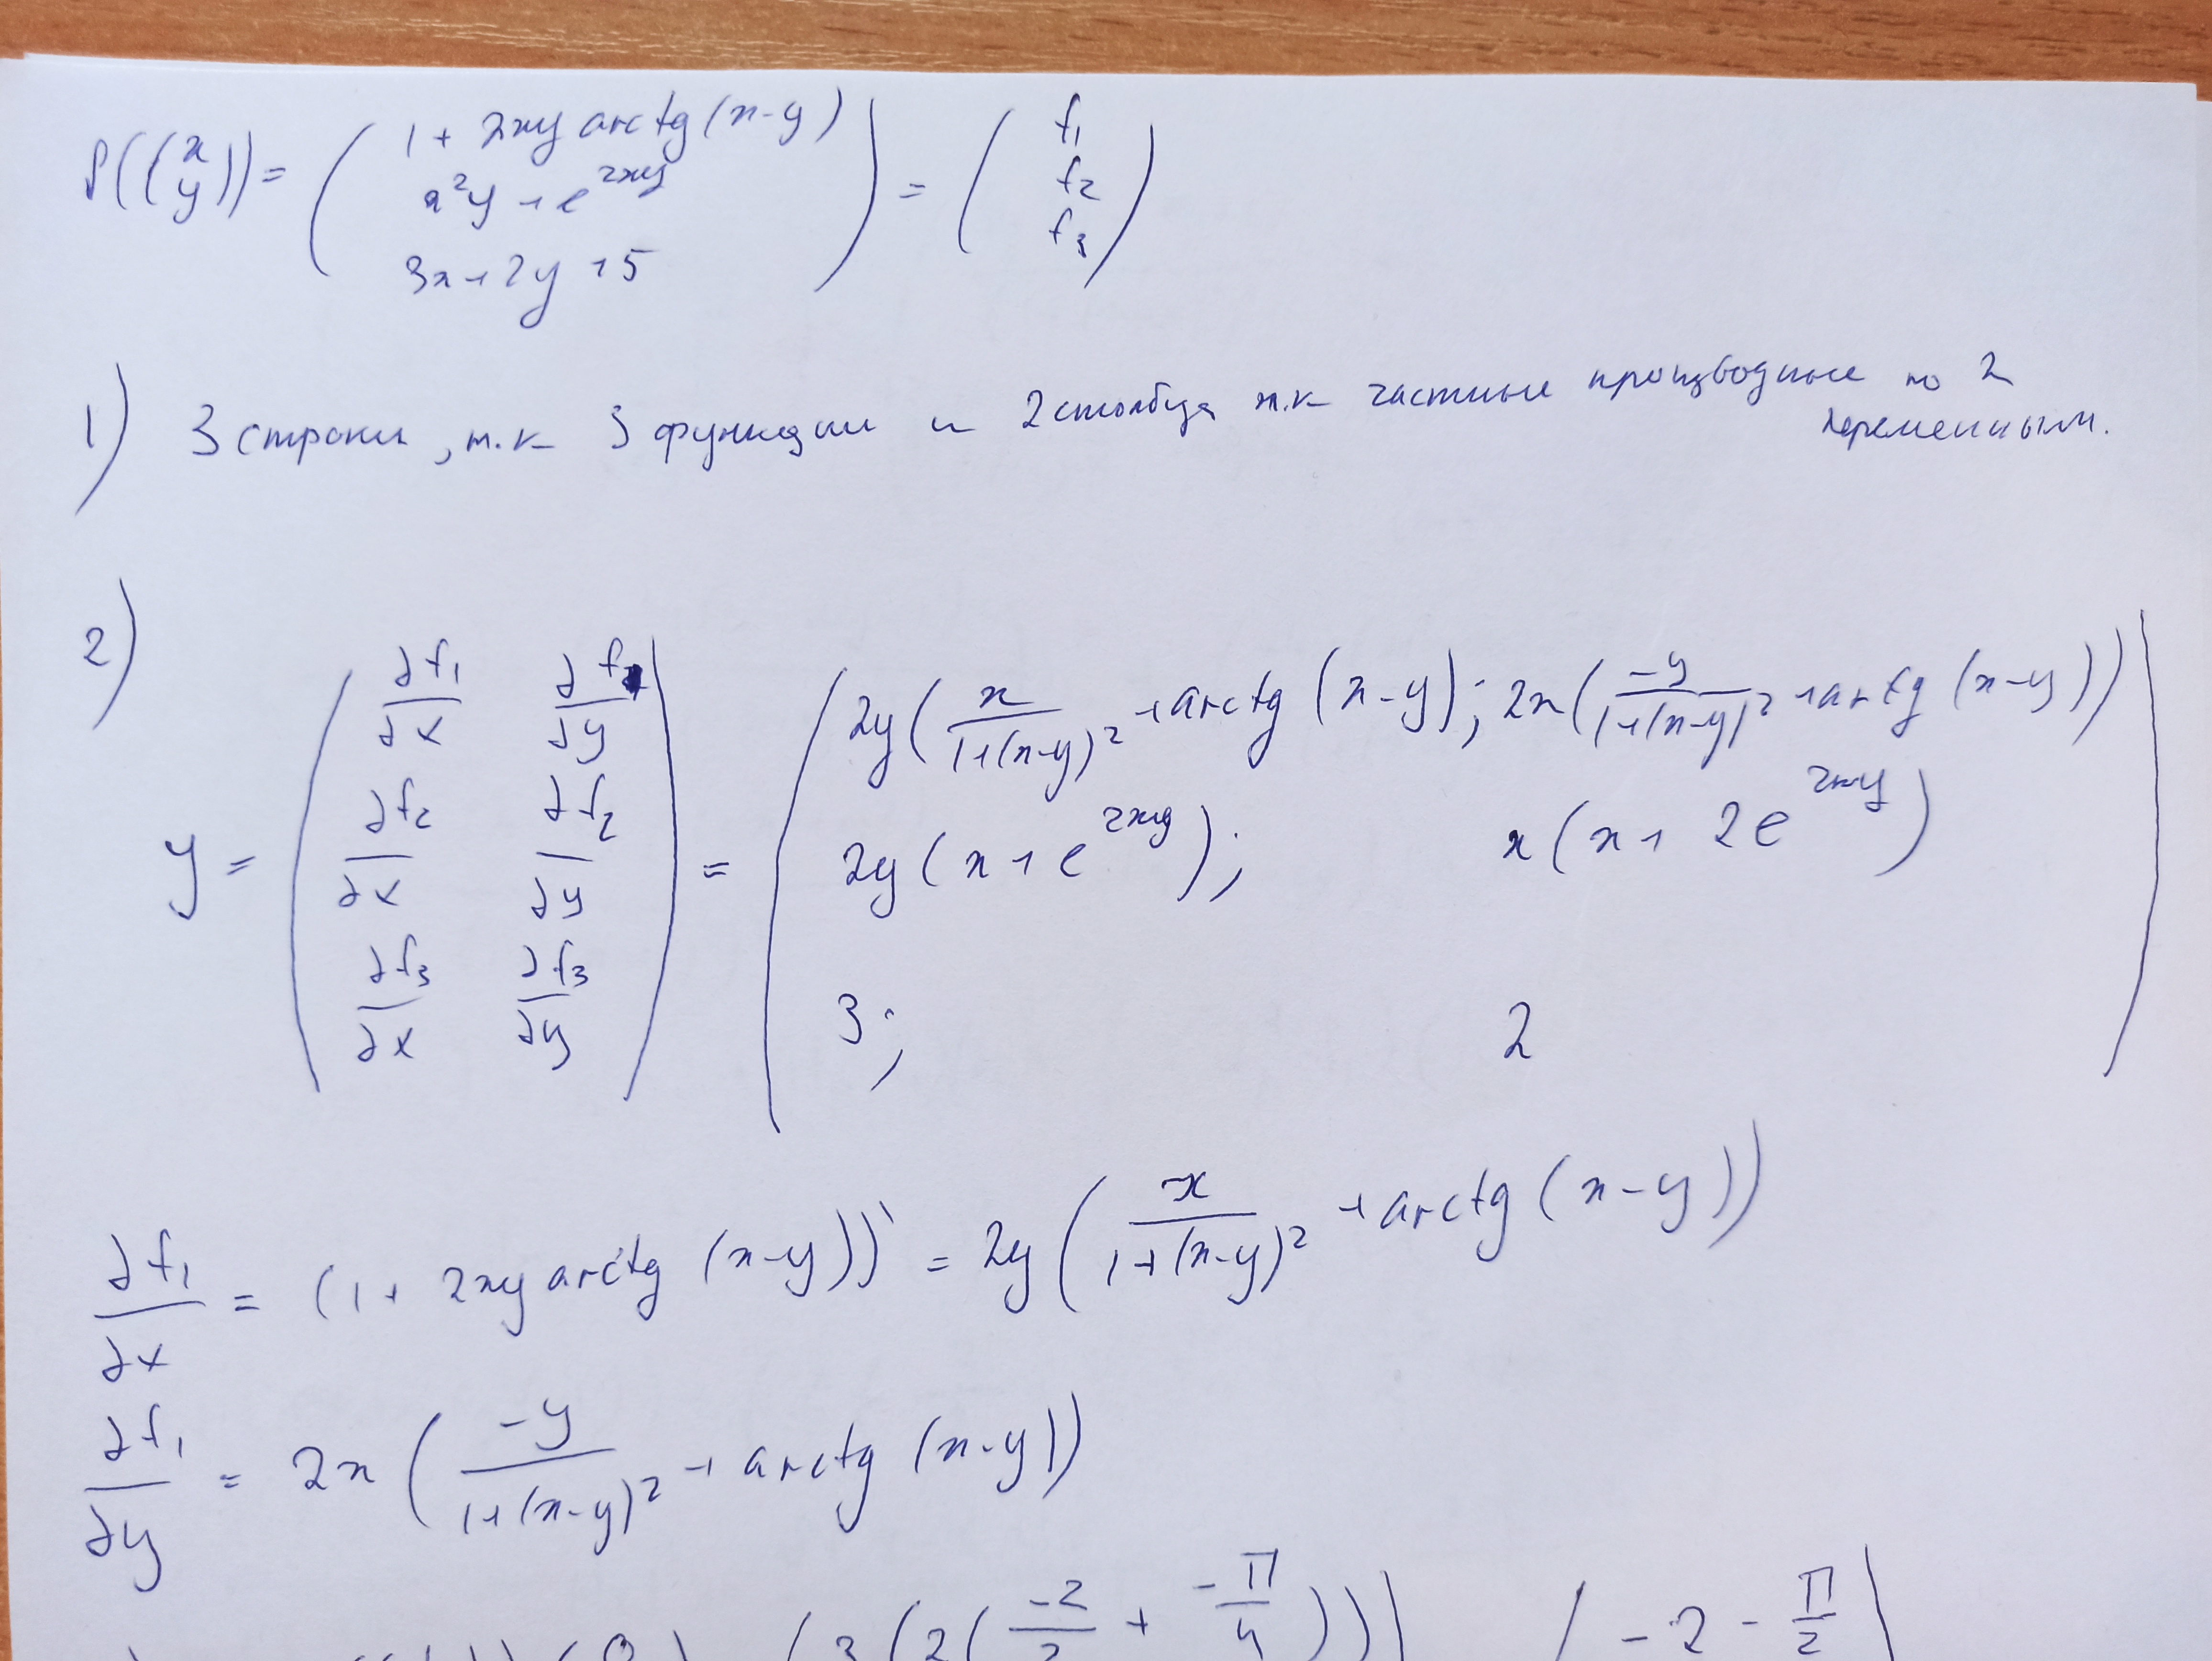 f((x y)) = ( 1 + 2xy arctg(x-y) x²y + e^{2xy} 3x + 2y + 5 ) = ( f₁ f₂ f₃ )
1) 3 строки, т.к 3 функции и 2 столбца т.к частные производные по 2
переменным.
2) y = ( ∂f₁/∂x ∂f₁/∂y ∂f₂/∂x ∂f₂/∂y ∂f₃/∂x ∂f₃/∂y ) = ( 2y(x/(1+(x-y)²) + arctg(x-y); 2x(-y/(1+(x-y)²) + arctg(x-y))
2y(x + e^{2xy}); x(x + 2e^{2xy})
3; 2 )
∂f₁/∂x = (1 + 2xy arctg(x-y))' = 2y(x/(1+(x-y)²) + arctg(x-y))
∂f₁/∂y = 2x(-y/(1+(x-y)²) + arctg(x-y))
(2(-2/2 + -π/4))) ( -2 - π/2